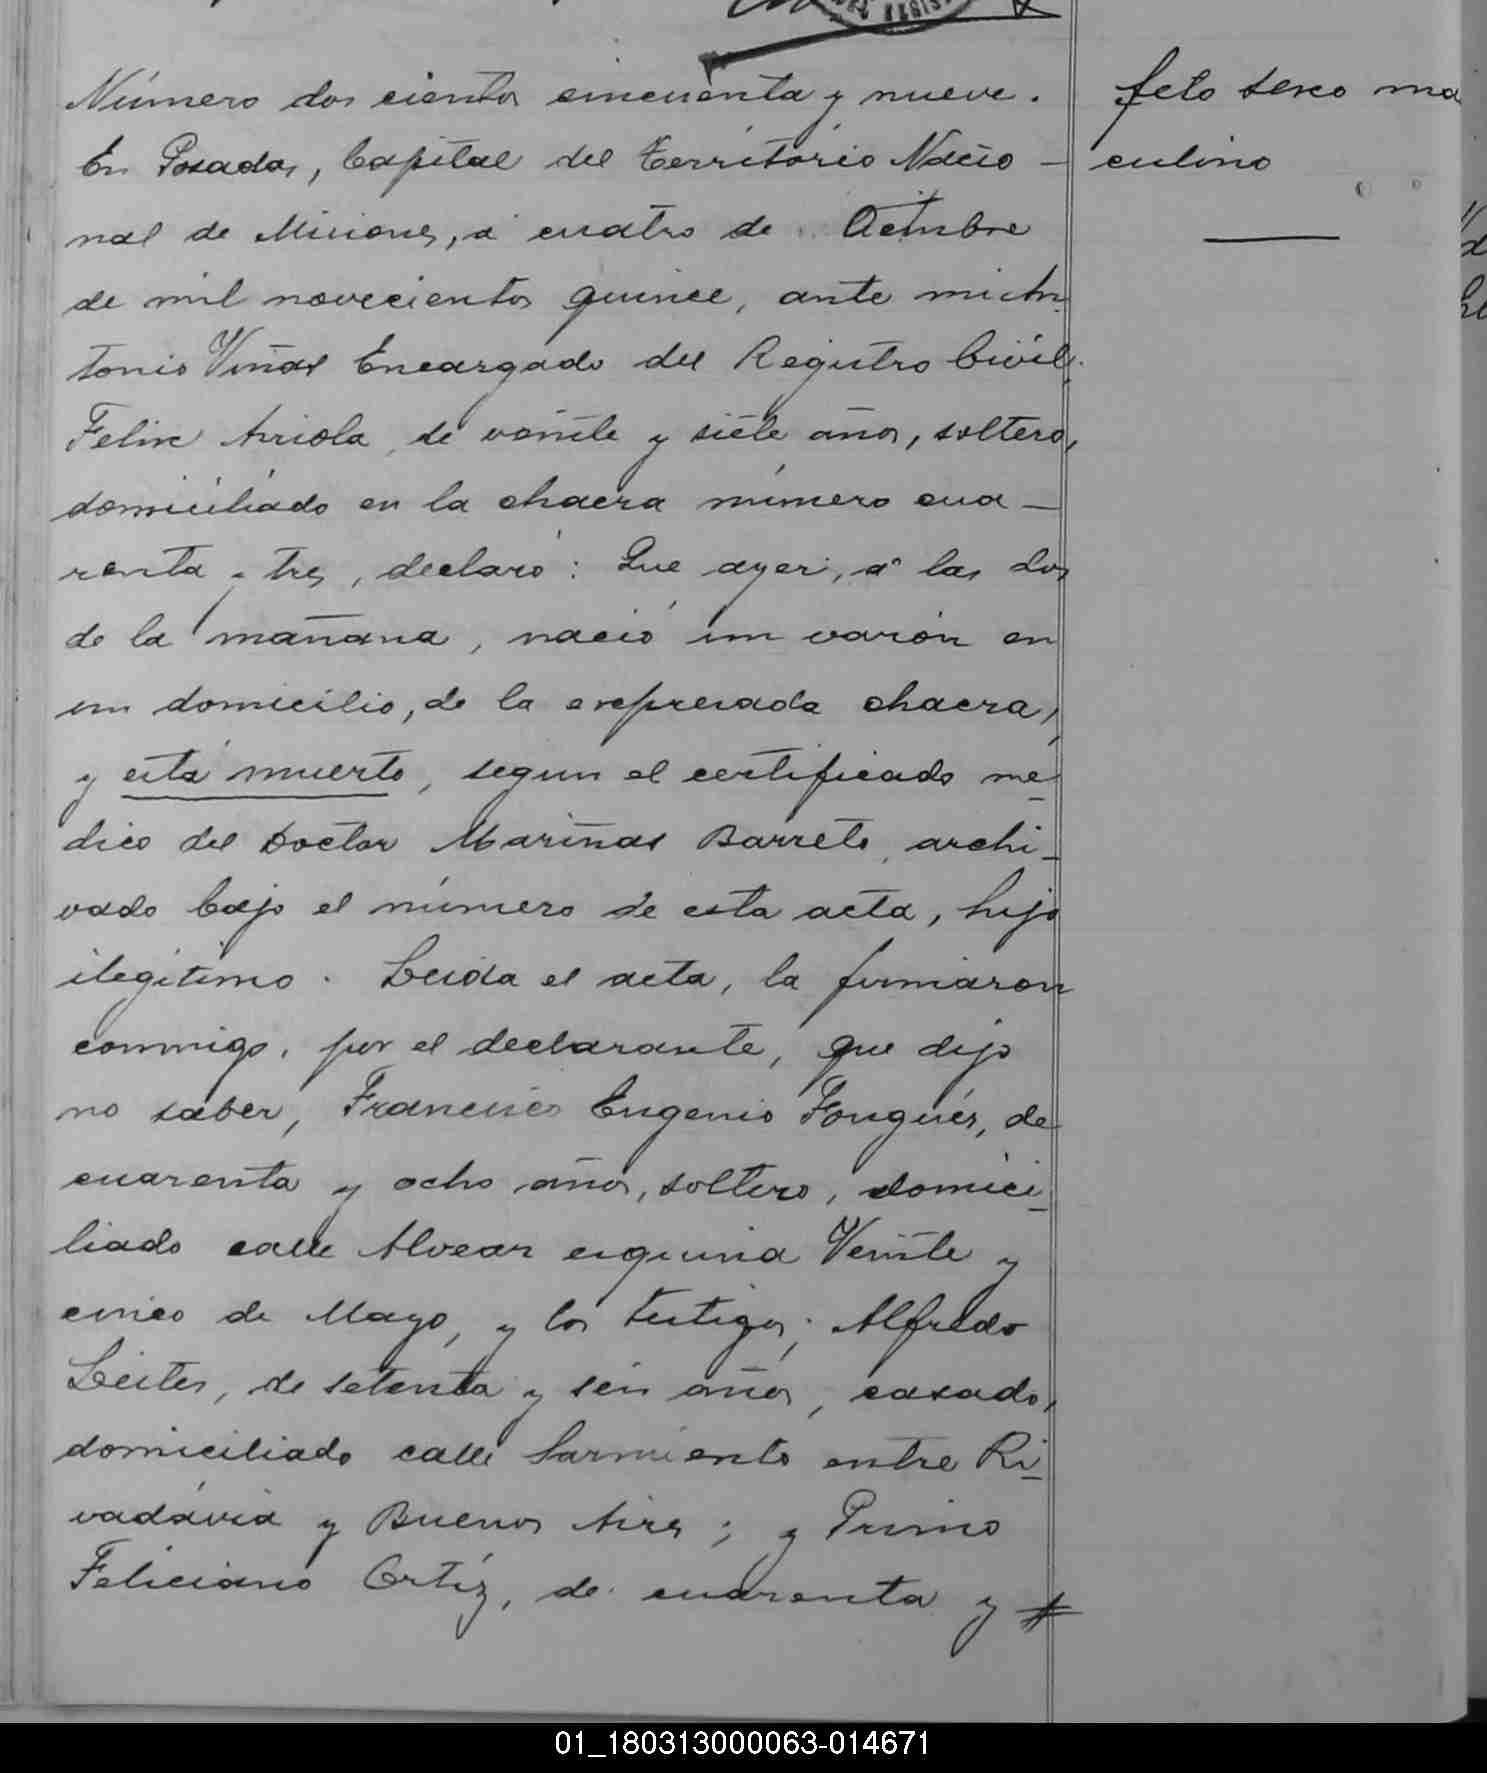 Número dos cientos cincuenta y nueve.
En Posadas, Capital del Territorio Nacio-
nal de Misiones, á cuatro de Octubre
de mil novecientos quince, ante mi An
tonio Viñas Encargado del Registro Civil.
Felix Arriola, de veinte y siete años, soltero,
domiciliado en la chacra número cua-
renta y tres, declaró: Que ayer, á las dos
de la mañana, nació un varón en
su domicilio, de la expresada chacra,
y está muerto, segun el certificado me
dico del Doctor Mariñas Barreto, archi-
vado bajo el número de esta acta, hijo
ilegítimo. Leida el acta, la firmaron
conmigo, por el declarante, que dijo
no saber, Francisco Eugenio Fougués, de
cuarenta y ocho años, soltero, domici-
liado calle Alvear esquina Veinte y
cinco de Mayo, y los testigos; Alfredo
Leites, de setenta y seis años, casado,
domiciliado calle Sarmiento entre Ri-
vadávia y Buenos Aires; y Primo
Feliciano Ortíz, de cuarenta y #
feto sexo ma
culino
01_180313000063-014671